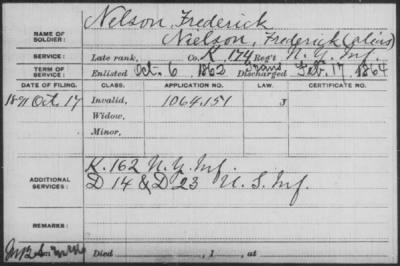 Nelson, Frederick
NAME OF SOLDIER: Nielson, Frederick (alias)
SERVICE: Late rank, Co. K, 174 Reg't N.Y. Inf.
TERM OF SERVICE: Enlisted Oct. 6, 1862 Trans Discharged Feb. 17, 1864
DATE OF FILING. CLASS. APPLICATION NO. LAW. CERTIFICATE NO.
1891 Oct 17 Invalid, 1064.151
Widow,
Minor,
K. 162 N.Y. Inf.
ADDITIONAL SERVICES: D 14 & D 23 U.S. Inf.
REMARKS:
Died , 1 , at